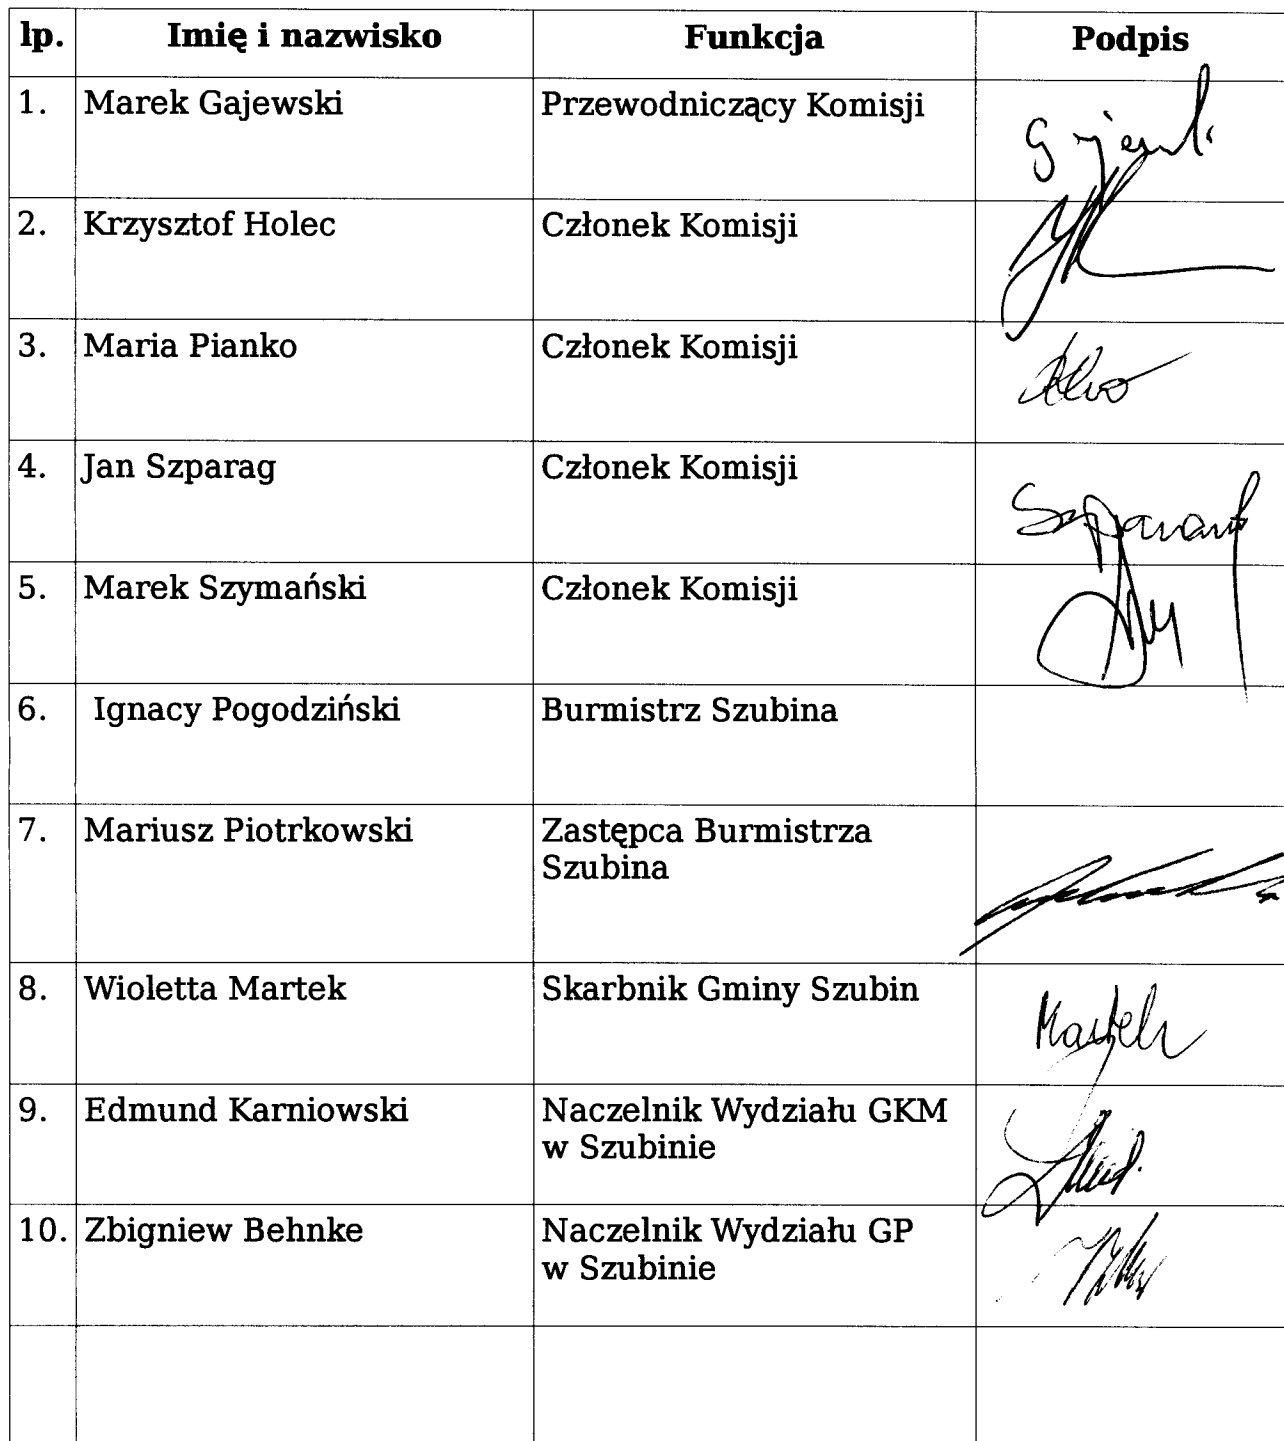 lp. Imię i nazwisko Funkcja Podpis
1. Marek Gajewski Przewodniczący Komisji
2. Krzysztof Holec Członek Komisji
3. Maria Pianko Członek Komisji
4. Jan Szparag Członek Komisji Szparag
5. Marek Szymański Członek Komisji
6. Ignacy Pogodziński Burmistrz Szubina
7. Mariusz Piotrkowski Zastępca Burmistrza
Szubina
8. Wioletta Martek Skarbnik Gminy Szubin Martek
9. Edmund Karniowski Naczelnik Wydziału GKM
w Szubinie
10. Zbigniew Behnke Naczelnik Wydziału GP
w Szubinie